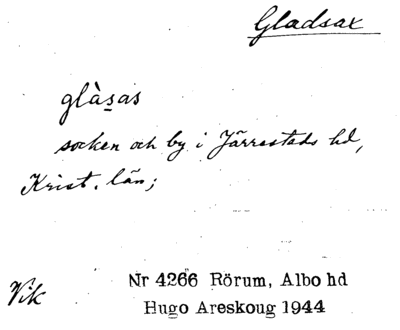 Gladsax
glàsas
socken och by i Järrestads hd,
Krist. län;
Vik
Nr 4266 Rörum, Albo hd
Hugo Areskoug 1944